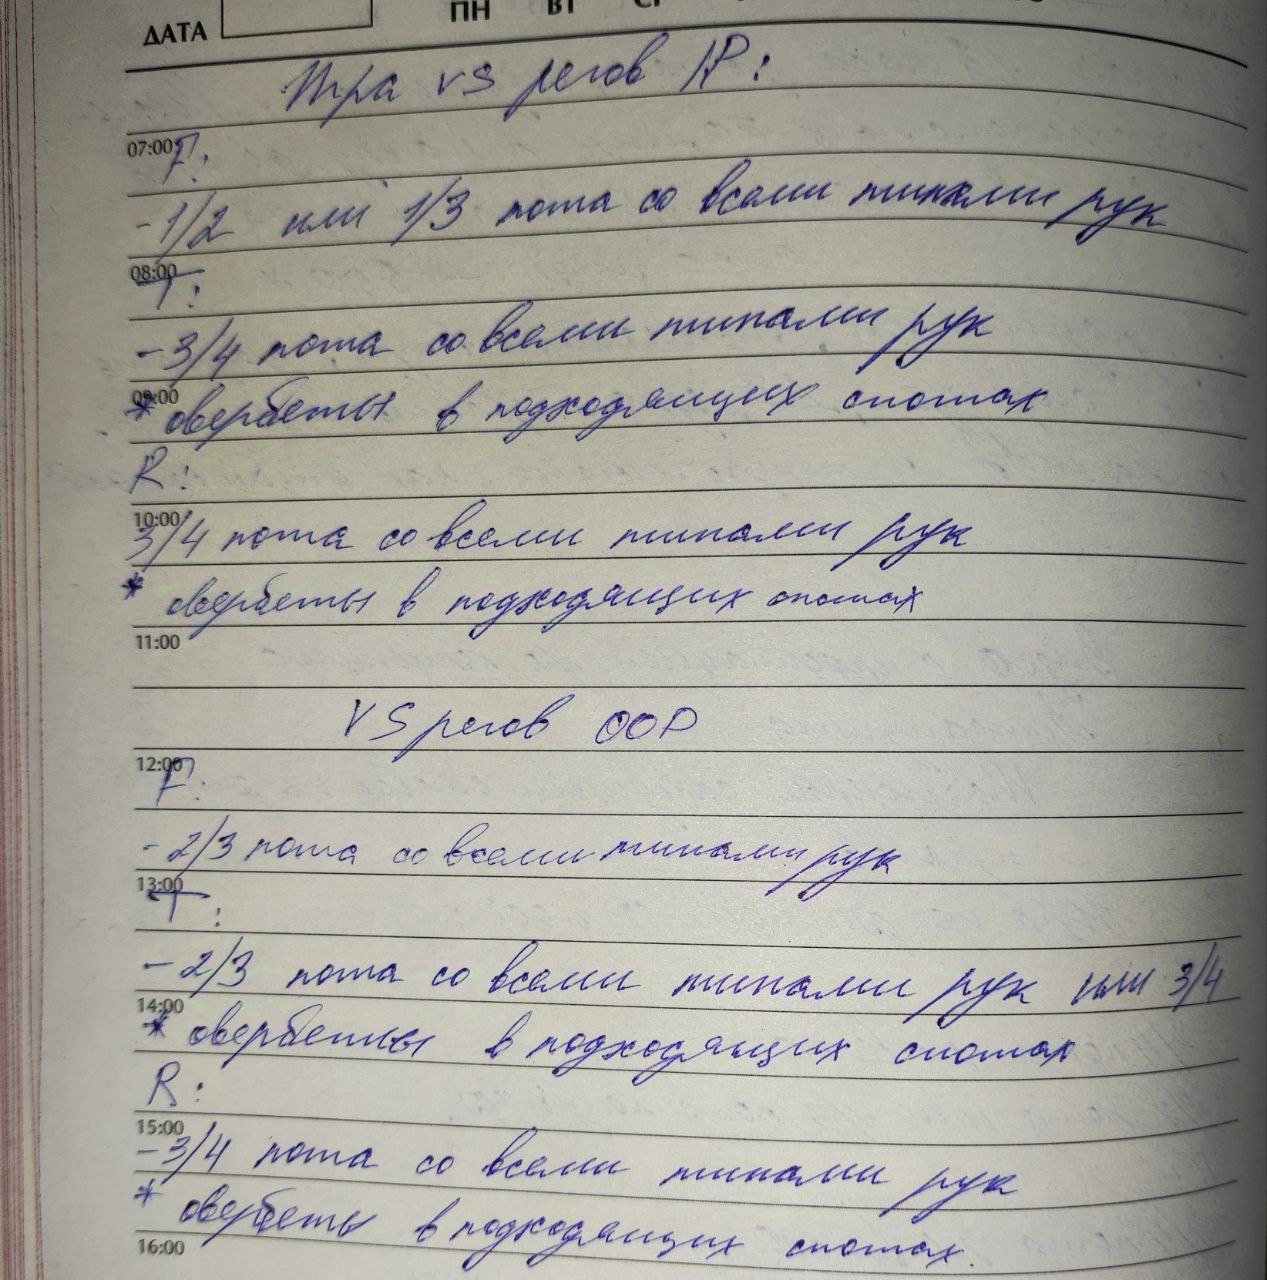 ДАТА
ПН ВТ СР
Игра vs регов IP:
07:00 F:
- 1/2 или 1/3 пота со всеми типами рук
08:00 T:
- 3/4 пота со всеми типами рук
09:00
* овербеты в подходящих спотах
R:
10:00
3/4 пота со всеми типами рук
* овербеты в подходящих спотах
11:00
VS регов OOP
12:00 F:
- 2/3 пота со всеми типами рук
13:00 T:
- 2/3 пота со всеми типами рук или 3/4
14:00
* овербеты в подходящих спотах
R:
15:00
- 3/4 пота со всеми типами рук
* овербеты в подходящих спотах.
16:00